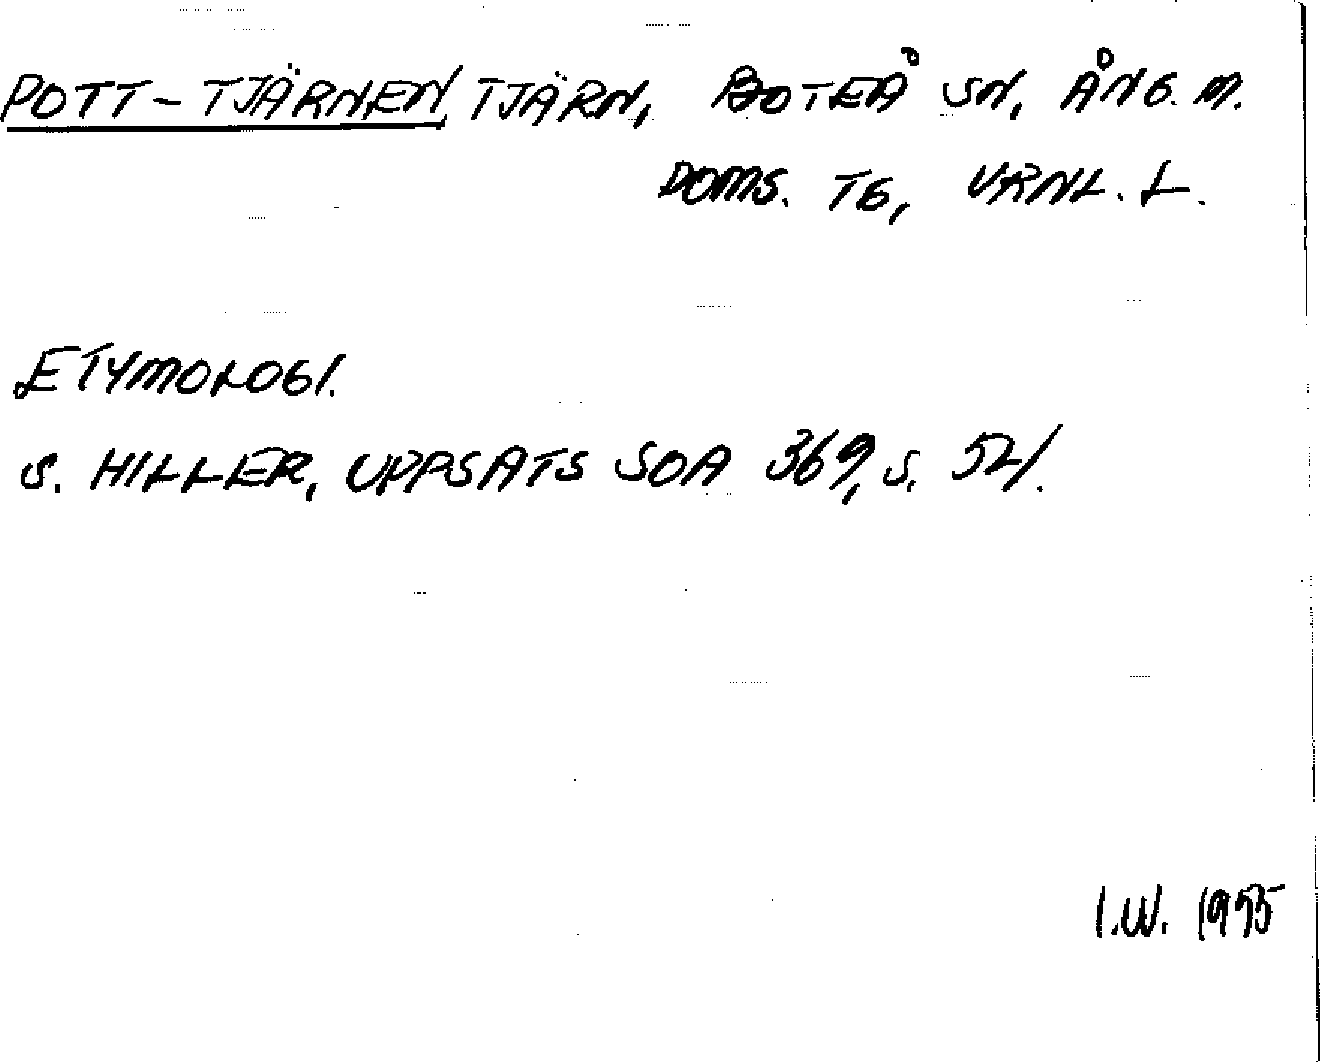 POTT-TJÄRNEN, TJÄRN, BOTEÅ SN, ÅNG. M.
DOMS. TG, VRNL. L.
ETYMOLOGI.
S. HILLER, UPPSATS SOA 369, S. 52
I.W. 1955